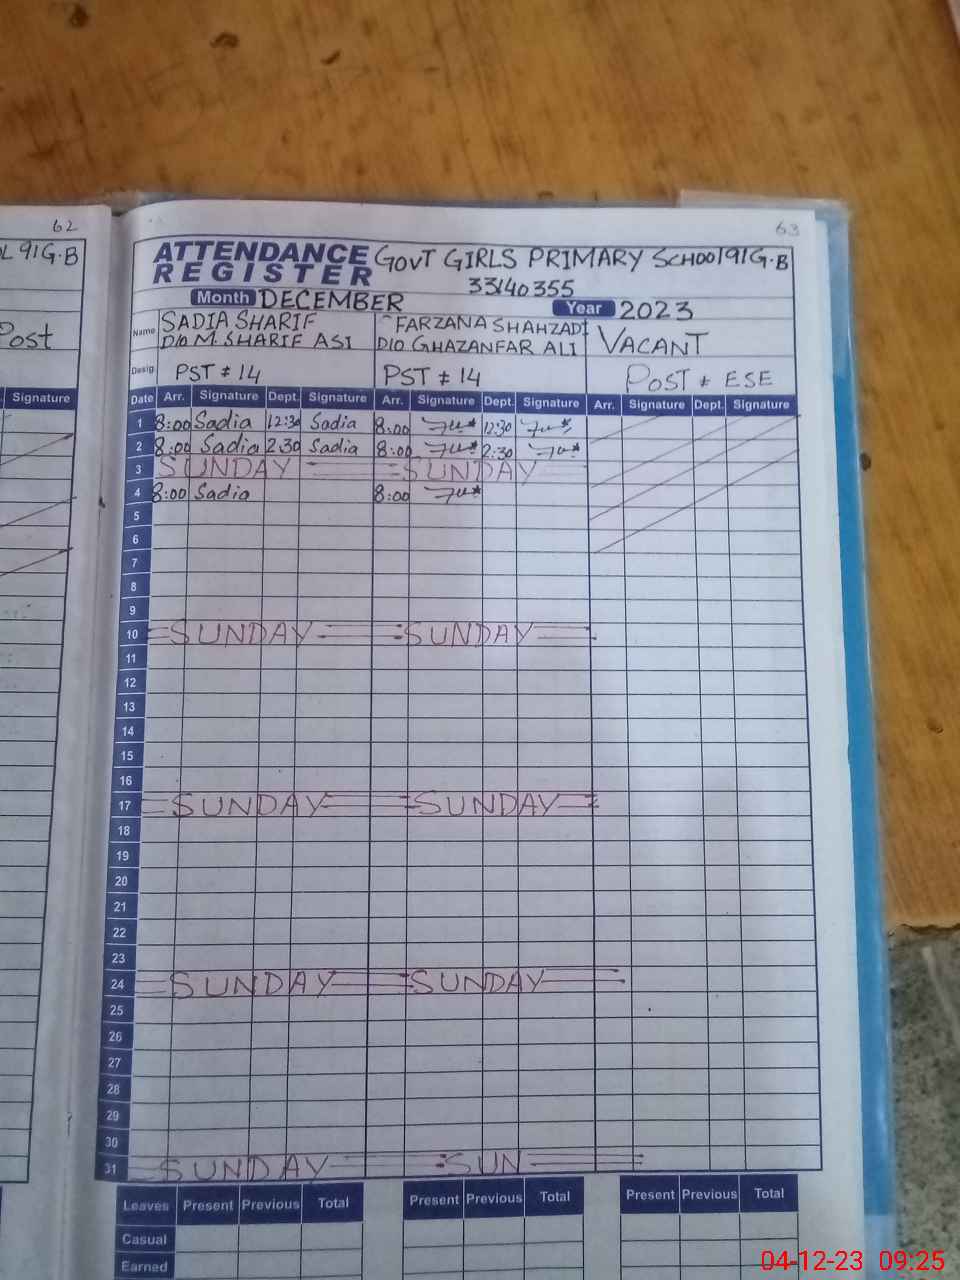 62
OL 91G.B
Post
Signature
63
ATTENDANCE REGISTER GOVT GIRLS PRIMARY SCHOOl91G.B
33140355
Month DECEMBER Year 2023
Name SADIA SHARIF FARZANA SHAHZADI VACANT
D/O M. SHARIF ASI D/O GHAZANFAR ALI
Desig. PST # 14 PST # 14 POST # ESE
Date Arr. Signature Dept. Signature Arr. Signature Dept. Signature Arr. Signature Dept. Signature
1 8:00 Sadia 12:30 Sadia 8:00 12:30
2 8:00 Sadia 2:30 Sadia 8:00 2:30
3 SUNDAY SUNDAY
4 8:00 Sadia 8:00
5
6
7
8
9
10 SUNDAY SUNDAY
11
12
13
14
15
16
17 SUNDAY SUNDAY
18
19
20
21
22
23
24 SUNDAY SUNDAY
25
26
27
28
29
30
31 SUNDAY SUN
Leaves Present Previous Total Present Previous Total Present Previous Total
Casual
Earned
04-12-23 09:25